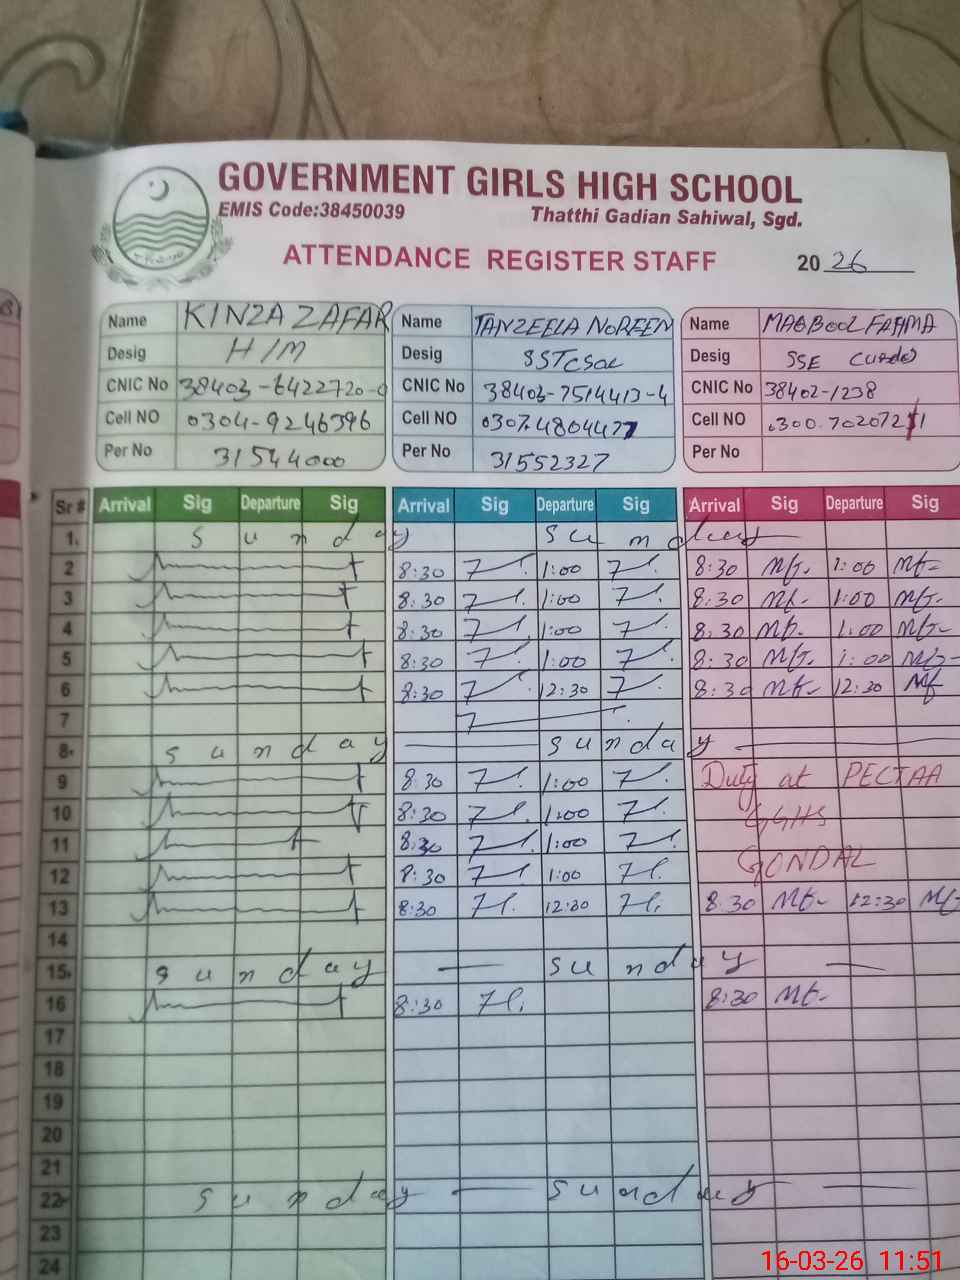 GOVERNMENT GIRLS HIGH SCHOOL
EMIS Code:38450039 Thatthi Gadian Sahiwal, Sgd.
ATTENDANCE REGISTER STAFF 20 26
Name KINZA ZAFAR Name TANZEELA NOREEN Name MAQBOOL FATIMA
Desig H/M Desig SST Desig SSE
CNIC No 38403-6422720-0 CNIC No 38403-7514413-4 CNIC No 38402-1238
Cell NO 0304-9246396 Cell NO 0307.4804477 Cell NO 0300.7020721
Per No 31544000 Per No 31552327 Per No
Sr # Arrival Sig Departure Sig Arrival Sig Departure Sig Arrival Sig Departure Sig
1. Sunday Sunday
2 8:30 1:00 8:30 1:00
3 8:30 1:00 8:30 1:00
4 8:30 1:00 8:30 1:00
5 8:30 1:00 8:30 1:00
6 8:30 12:30 8:30 12:30
7
8. Sunday Sunday
9 8:30 1:00 Duty at PECTAA
10 8:30 1:00 GGHS
11 8:30 1:00
12 8:30 1:00 GONDAL
13 8:30 12:30 8:30 12:30
14
15. Sunday Sunday
16 8:30 8:30
17
18
19
20
21
22 Sunday Sunday
23
24
16-03-26 11:51